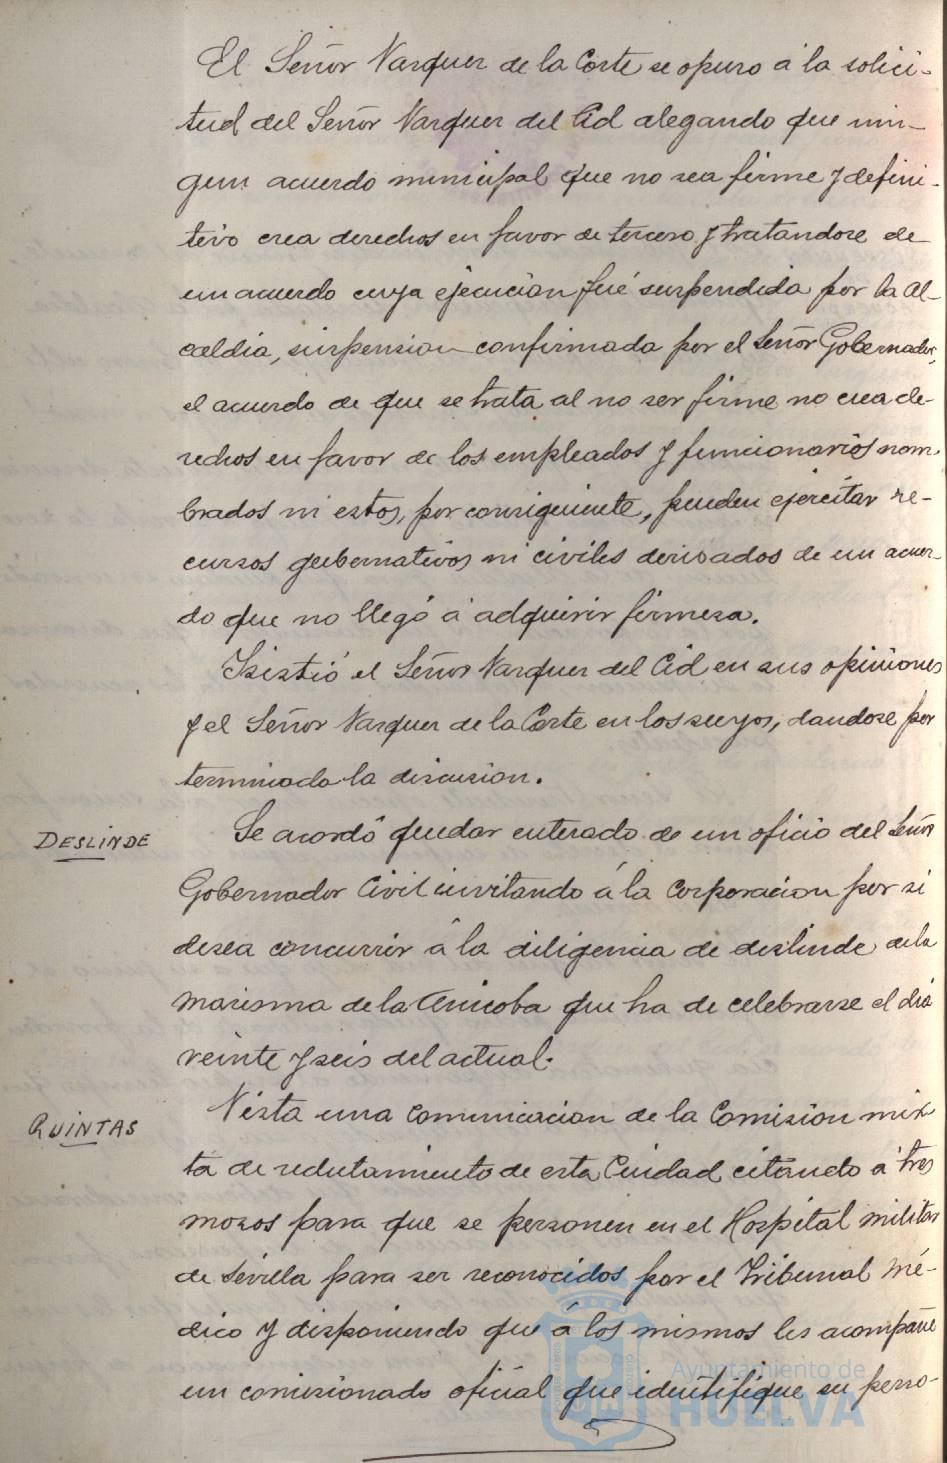 El Señor Vazquez de la Corte se opuso á la solici-
tud del Señor Vazquez del Cid alegando que nin-
gun acuerdo municipal que no sea firme y defini-
tivo crea derechos en favor de tercero y tratandose de
un acuerdo cuya ejecucion fué suspendida por la Al-
caldia, suspension confirmada por el Señor Gobernador,
el acuerdo de que se trata al no ser firme no crea de-
rechos en favor de los empleados y funcionarios nom-
brados ni estos, por consiguiente, pueden ejercitar re-
cursos gubernativos ni civiles derivados de un acuer-
do que no llegó á adquirir firmeza.
Isistió el Señor Vazquez del Cid en sus opiniones
y el Señor Vazquez de la Corte en los suyos, dandose por
terminada la discusion.
DESLINDE
Se acordó quedar enterado de un oficio del Señor
Gobernador Civil invitando á la Corporacion por si
desea concurrir á la diligencia de deslinde de la
marisma de la Anicoba que ha de celebrarse el dia
veinte y seis del actual.
QUINTAS
Vista una comunicacion de la Comision mix-
ta de reclutamiento de esta Ciudad citando á tres
mozos para que se personen en el Hospital militar
de Sevilla para ser reconocidos por el Tribunal Mé-
dico y disponiendo que á los mismos les acompañe
un comisionado oficial que identifique su perso-
Ayuntamiento de
HUELVA